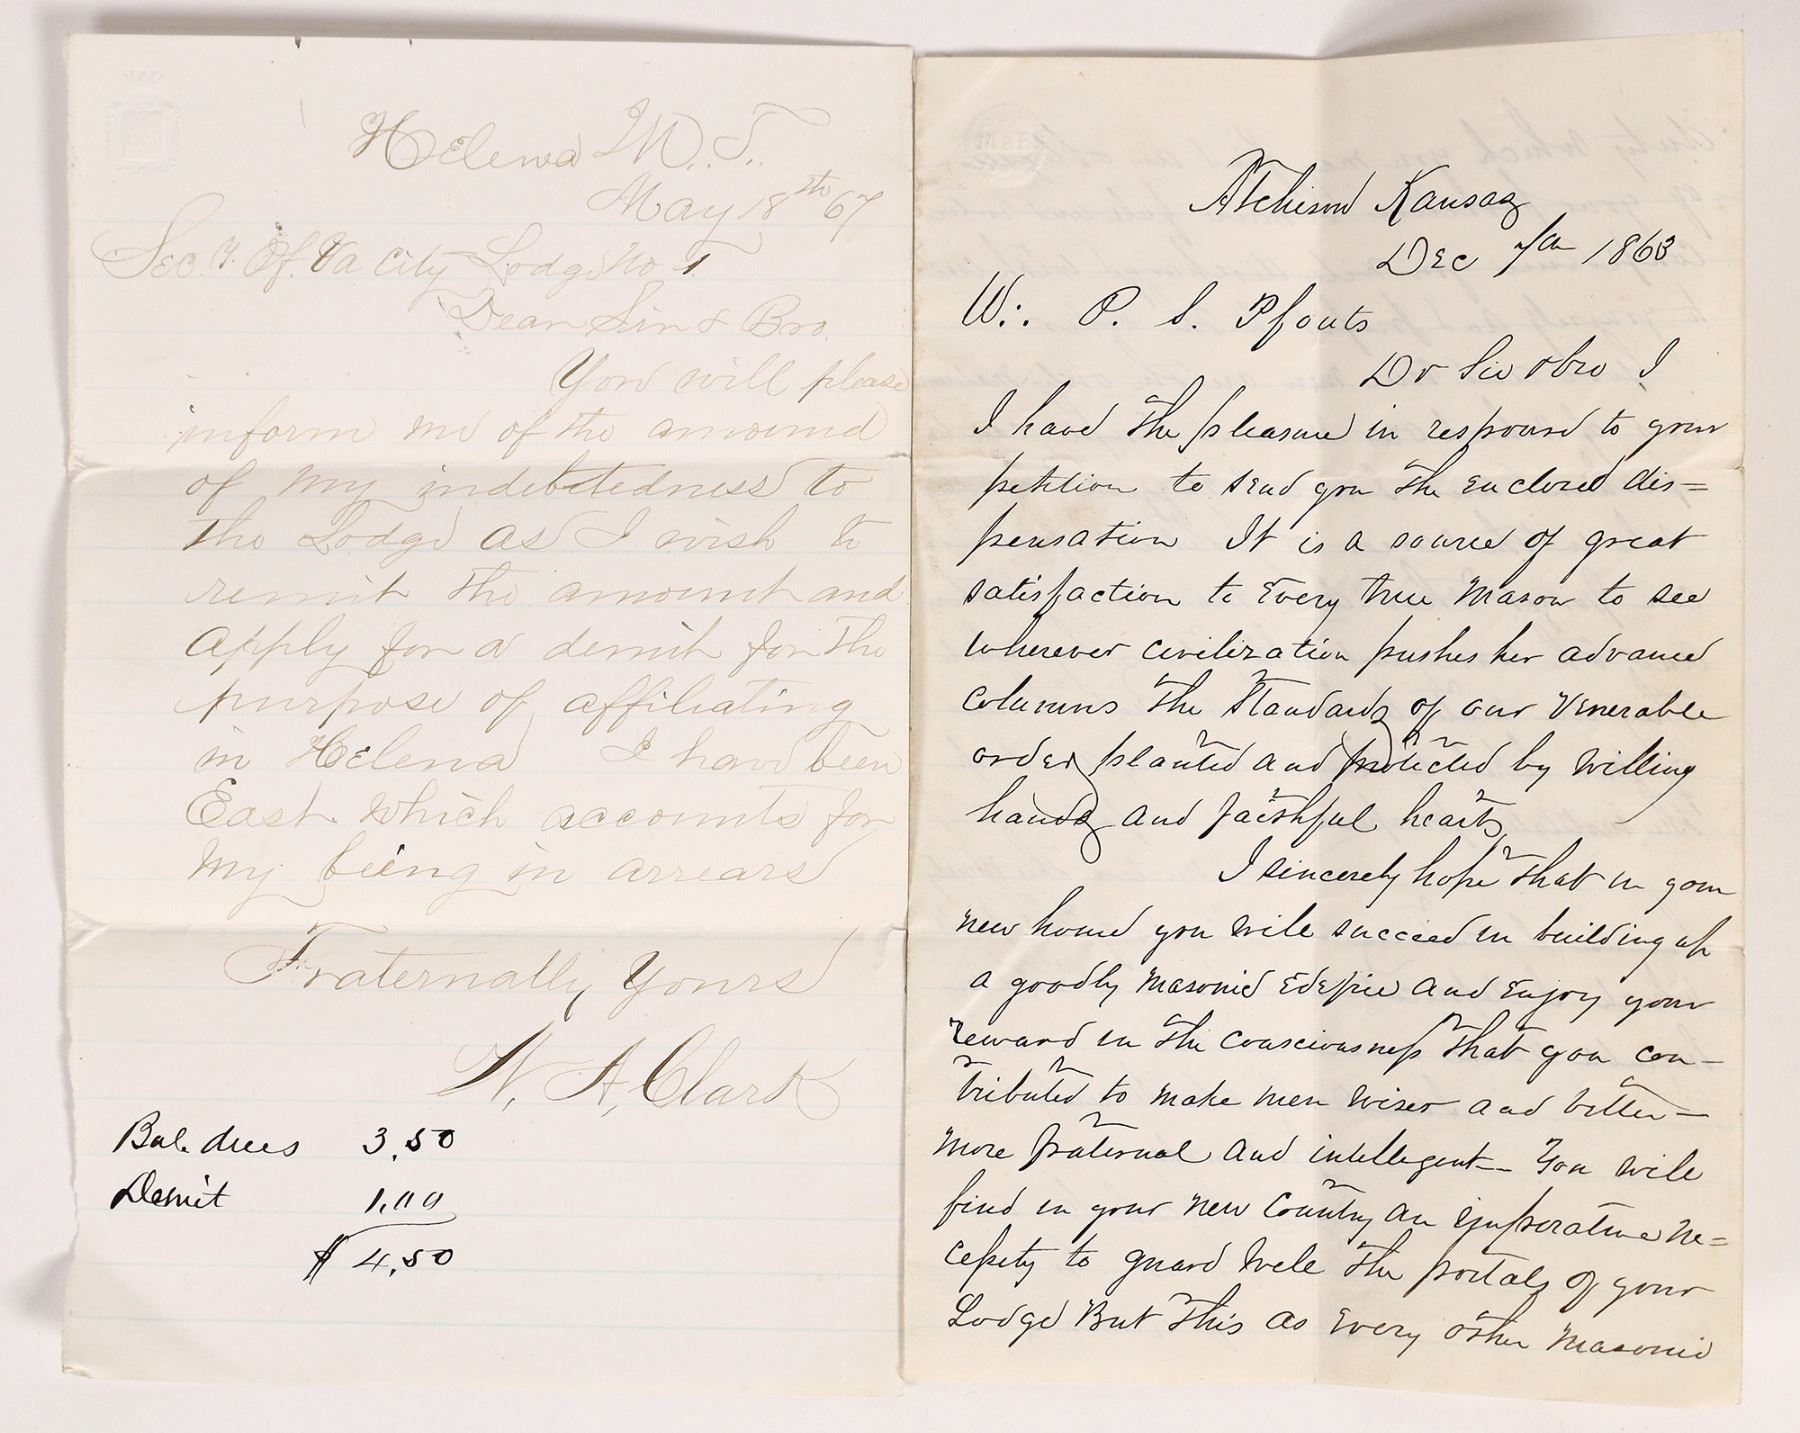 Helena M. T.
May 18th 67
Secy. Of. Va City Lodge No 1
Dear Sir & Bro.
You will please
inform me of the amound
of my indebtedness to
the Lodge as I wish to
remit the amount and
apply for a demit for the
purpose of affiliating
in Helena I have been
East which accounts for
my being in arrears
Fraternally Yours
W. A. Clark
Bal. dues 3.50
Demit 1.00
$ 4.50
Atchison Kansas
Dec 7th 1863
W∴ P. S. Pfouts
Dr Sir & bro I
I have the pleasure in respond to your
petition to send you the enclosed dis=
pensation It is a source of great
satisfaction to Every true Mason to see
wherever civilization pushes her advance
columns the Standards of our Venerable
order planted and protected by willing
hands and faithful hearts
I sincerely hope that in your
new home you will succeed in building up
a goodly Masonic Edefice and Enjoy your
reward in the consciousness that you con-
tributed to make men wiser and better-
more fraternal and intellegent- You will
find in your new Country an Imperative ne=
cessity to guard well the portals of your
Lodge But this as Every other Masonic